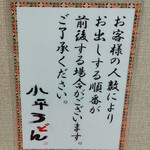 お客様の人数により
お出しする順番が
前後する場合がございます。
ご了承ください。
小平うどん